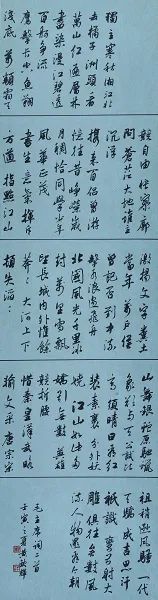 獨立寒秋湘江北
去橘子洲頭看
萬山紅遍層林
盡染漫江碧透
百舸爭流
鷹擊長空魚翔
淺底萬類霜天
競自由悵寥廓
問蒼茫大地誰主
沉浮
攜來百侶曾游
憶往昔崢嶸歲
月稠恰同學少年
風華正茂
書生意氣揮斥
方遒指點江山
激揚文字糞土
當年萬戶侯
曾記否到中流
擊水浪遏飛舟
北國風光千里冰
封萬里雪飄
望長城內外惟餘
莽莽大河上下
頓失滔滔
山舞銀蛇原馳蠟
象欲與天公試比
高須晴日看紅
裝素裹分外妖
嬈江山如此多
嬌引無數英雄
競折腰
惜秦皇漢武略
輸文采唐宗宋
祖稍遜風騷一代
天驕成吉思汗
祇識彎弓射大
雕俱往矣數風
流人物還看今朝
毛主席詞二首
壬寅之夏